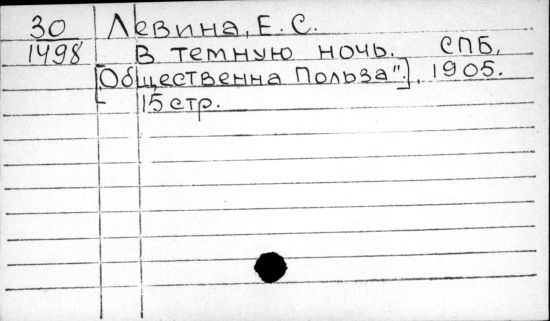 30 Левина, Е. С.
1498 В темную ночь. СПБ,
[Общественна Польза".], 1905.
15 стр.